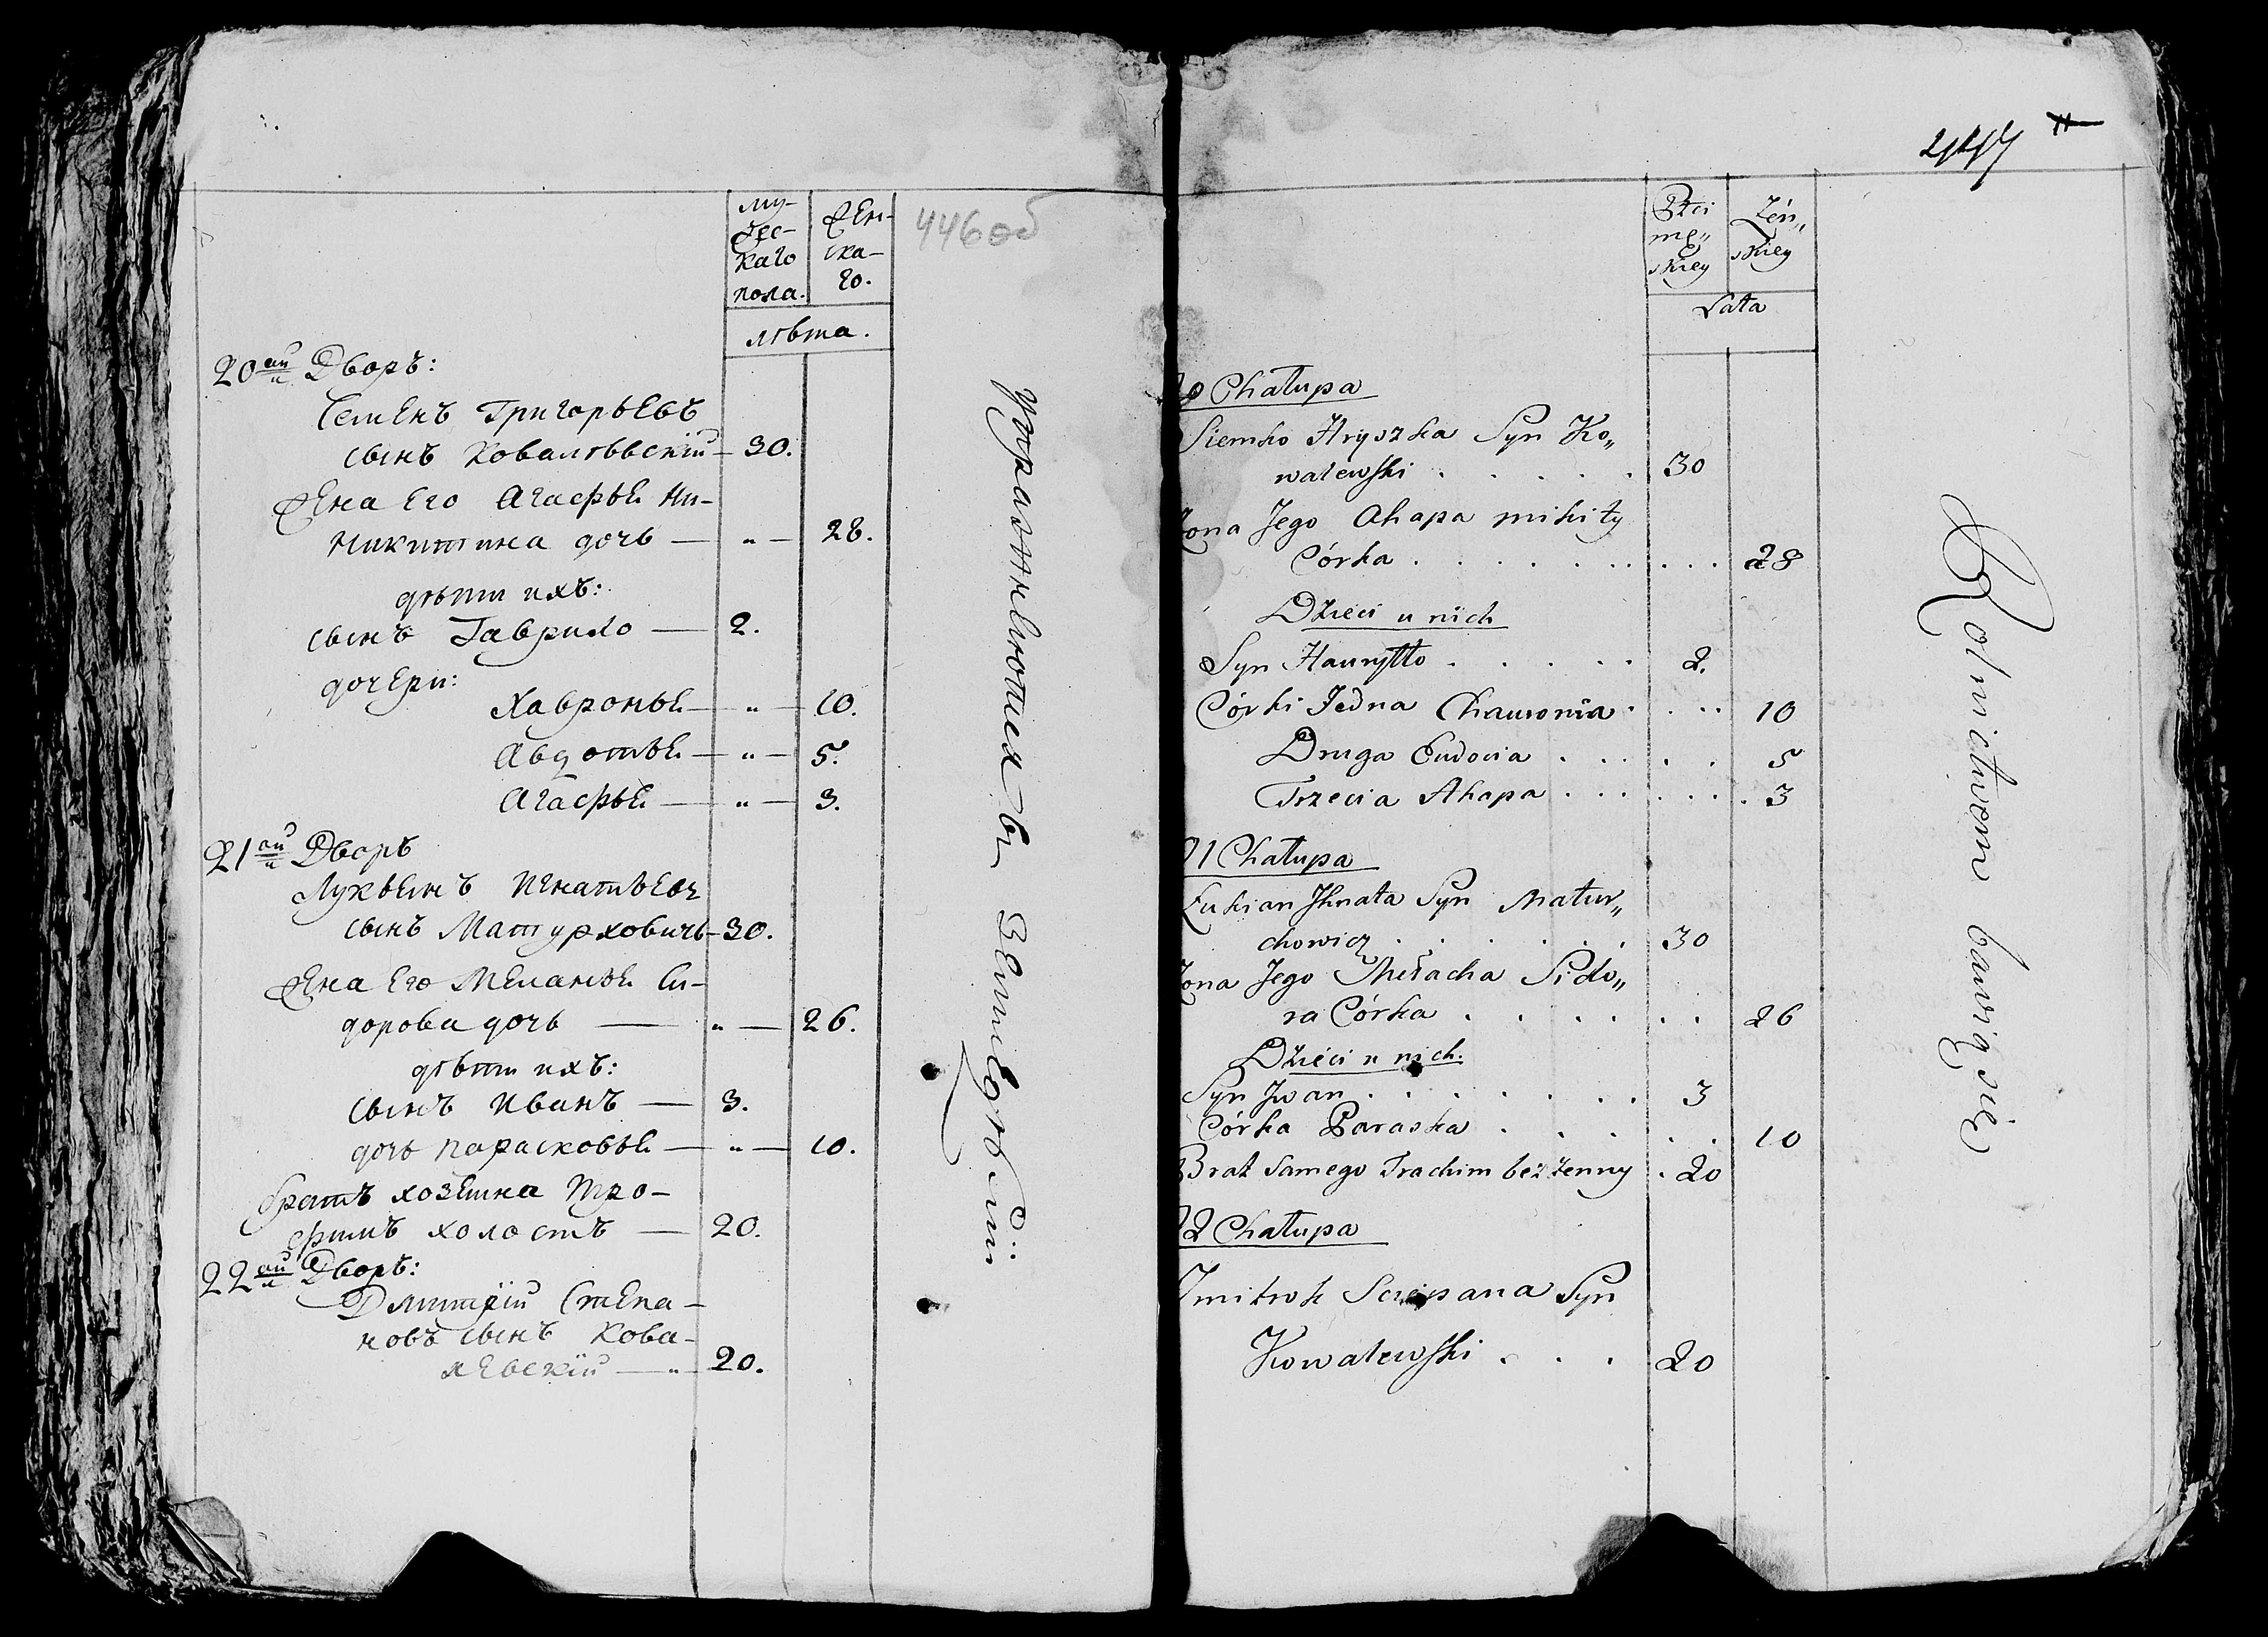 446об
му-
жес-
каго
пола.
жен-
ска-
го.
лѣта.
20ый Дворъ:
Семенъ Григорьевъ
сынъ Ковалѣвскій — 30.
жена Его Агафья Ни-
Никитина дочь — " — 28.
дѣти ихъ:
сынъ Гаврило — 2.
дочери:
Хавронья — " — 10.
Авдотья — " — 5.
Агафья — " — 3.
21ый Дворъ
Лукьянъ Игнатьевъ
сынъ Матурховичь — 30.
жена Его Меланья Си-
дорова дочь — " — 26.
дѣти ихъ:
сынъ Иванъ — 3.
дочь Парасковья — " — 10.
братъ хозяина Тро-
фимъ холостъ — 20.
22ый Дворъ:
Дмитрій Степа-
новъ сынъ Кова-
левскій — " 20.
упражняются въ Земледѣліи
447
Płci
mę„
skiey
Żeń„
skiey
Lata
20 Chałupa
Siemko Hryszka Syn Ko„
walewski . . . . . 30
Żona Jego Ahapa mikity
Córka . . . . . . . . . 28
Dzieci u nich
Syn Hawryłło . . . . . 2.
Córki Jedna Chawronia . . . . 10
Druga Eudocia . . . . . 5
Trzecia Ahapa . . . . . . . 3
21 Chałupa
Łukian Jhnata Syn Matur„
chowicz . . . . . . 30
Żona Jego Małacha Sido„
ra Córka . . . . . . . 26
Dzieci u nich.
Syn Jwan . . . . . . . 3
Córka Paraska . . . . . . 10
Brat Samego Trachim bezżenny . 20
22 Chałupa
Dmitrok Sciepana Syn
Kowalewski . . . 20
Rolnictwem bawią się